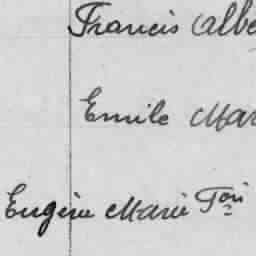 Francis Albe
Emile Mar
Eugène Marie Fois